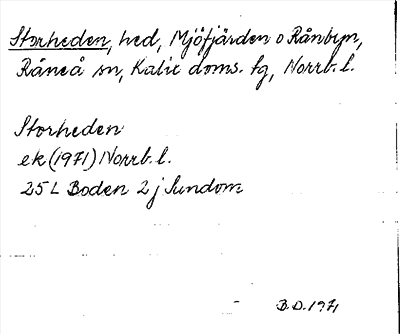 Storheden, hed, Mjöfjärden o Rånbyn,
Råneå sn, Kalix doms. tg, Norrb. l.
Storheden
ek (1971) Norrb. l.
25 L Boden 2 j Sundom
B.D. 1971